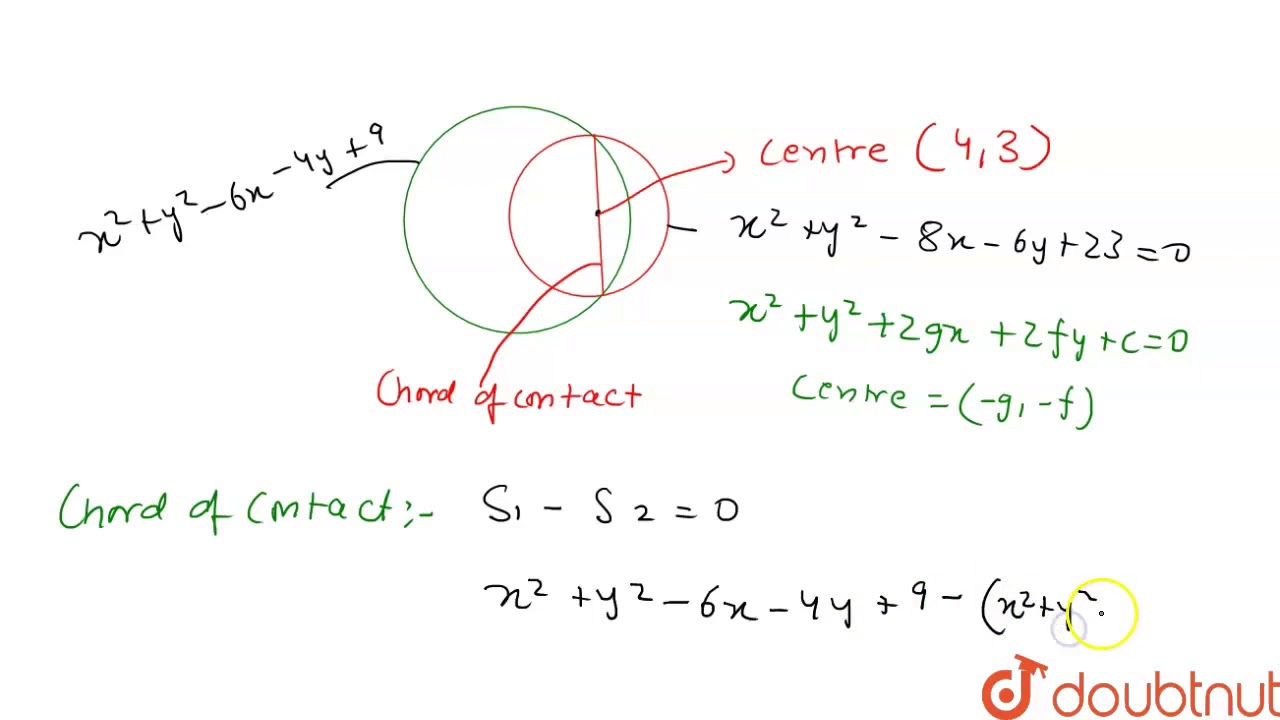 x² + y² - 6x - 4y + 9
Centre (4,3)
x² + y² - 8x - 6y + 23 = 0
x² + y² + 2gx + 2fy + c = 0
Centre = (-g, -f)
Chord of contact
Chord of Contact :- S₁ - S₂ = 0
x² + y² - 6x - 4y + 9 - (x² + y²
doubtnut